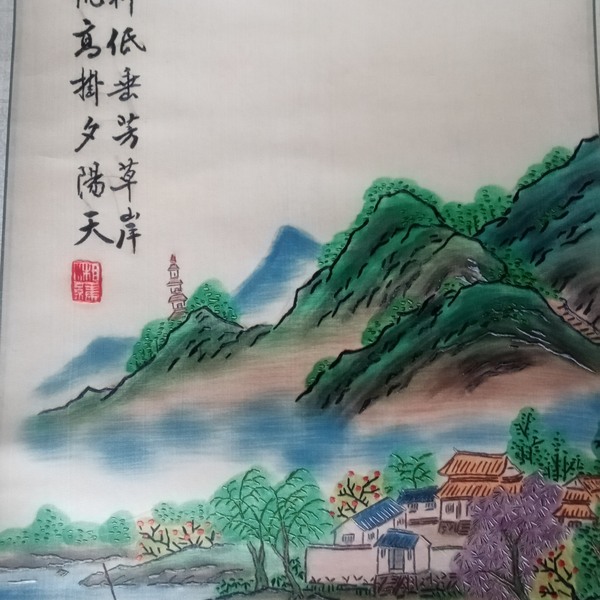 低垂芳草岸
高掛夕陽天